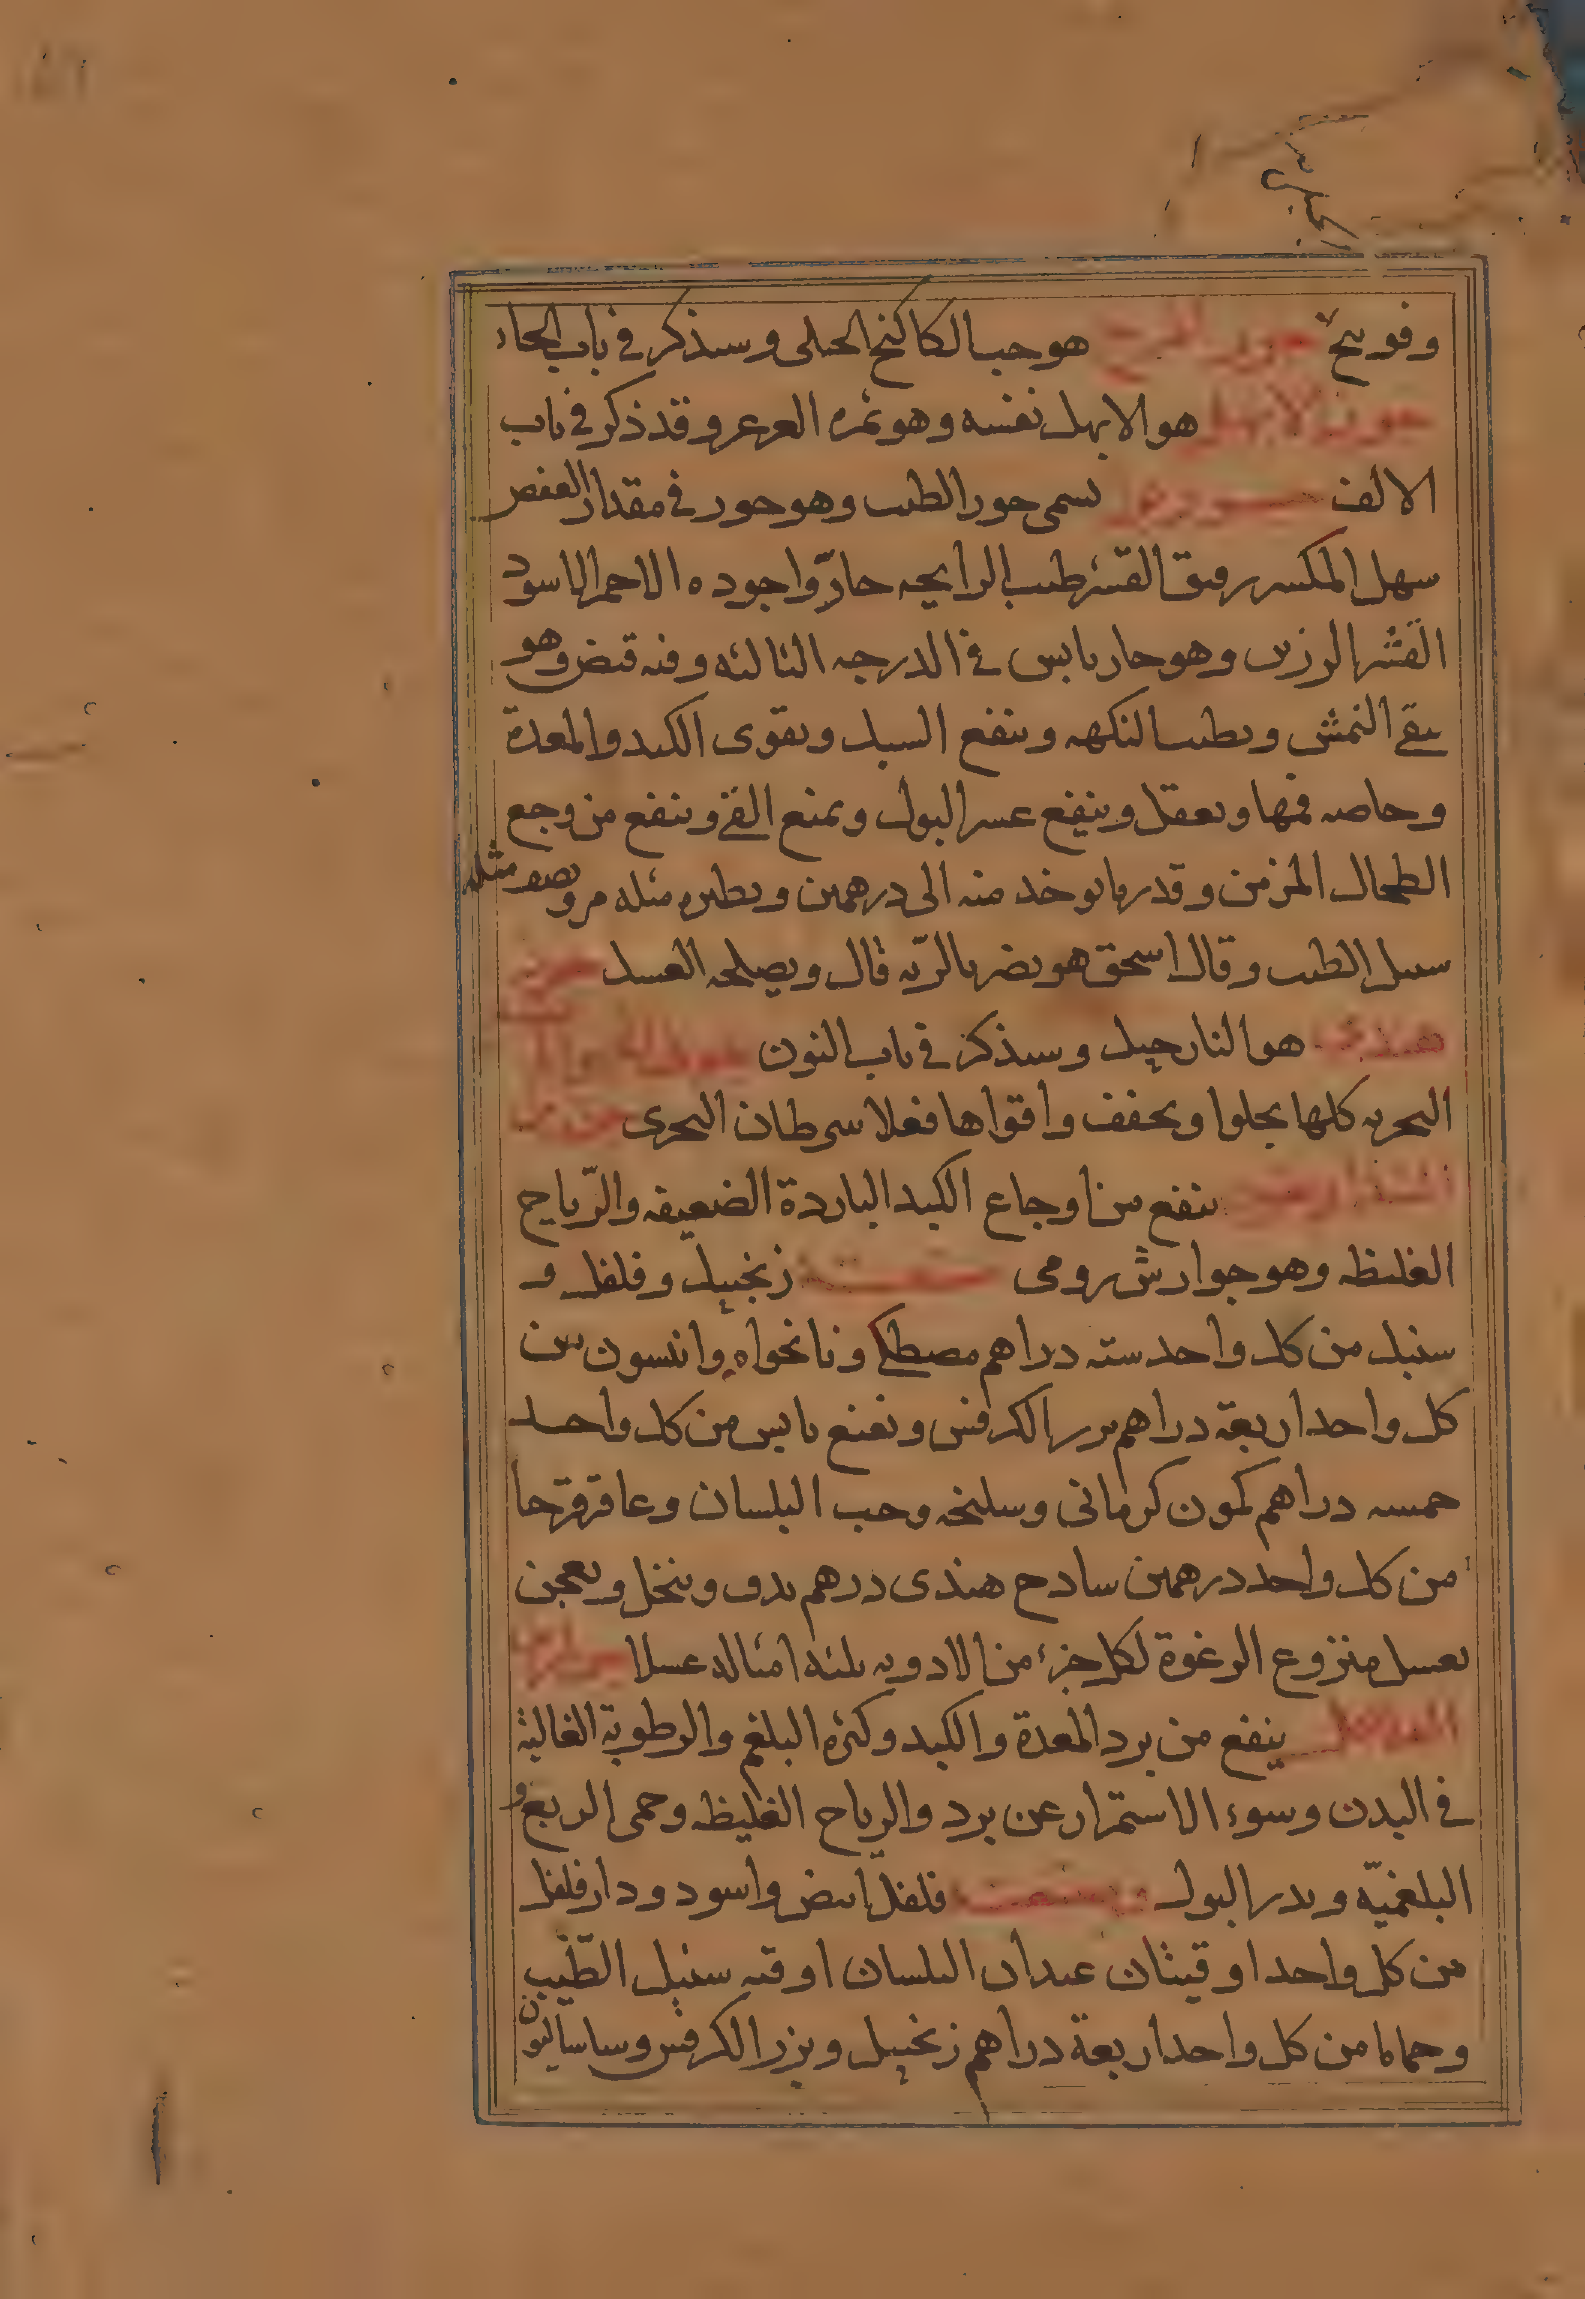 وفوتنج جوز المرج هو حب الكاكنج الجبلى وسيذكر فى باب الحاء
جوز الابهل هو الابهل نفسه وهو ثمره العرعر وقد ذكر فى باب
الالف جوزبوا يسمى جوز الطيب وهو جوز فى مقدار العفص
سهل المكسر رقيق القشر طيب الرايحه حادّ واجوده الاحمر الاسود
القشر الرزين وهو حار يابس فى الدرجه الثالثه وفيه قبض وهو
ينقى النمش ويطيب النكهه وينفع السبل ويقوى الكبد والمعدة
وخاصه فمها ويعقل وينفع عسر البول ويمنع القئ وينفع من وجع
الطحال المزمن وقدر ما يوخذ منه الى درهمين ونظيره مثله مر ونصف مثله
سنبل الطيب وقال اسحق هو يضر بالريّه قال ويصلحه العسل جوز
هندى هو النارجيل وسيذكر فى باب النون
البحريه كلها يجلوا ويجفف واقواها فعلا سرطان البحرى
ينفع من اوجاع الكبد الباردة الضعيفه والرّياح
الغليظه وهو جوارش رومى صفته زنجبيل وفلفل و
سنبل من كل واحد سته دراهم مصطكى ونانخواه وانيسون من
كل واحد اربعة دراهم بزر الكرفس ونعنع يابس من كل واحد
خمسه دراهم كمون كرمانى وسليخه وحب البلسان وعاقرقرحا
من كل واحد درهمين سادج هندى درهم يدق وينخل ويعجن
بعسل منزوع الرغوة لكل جزء من الادويه ثلثه امثاله عسلا جوارش
الفلافل ينفع من برد المعدة والكبد وكثره البلغم والرطوبة الغالبة
فى البدن وسوء الاستمرار عن برد والرياح الغليظه وحمى الربع و
البلغميّه ويدر البول وصفته فلفل ابيض واسود ودارفلفل
من كل واحد اوقيتان عيدان البلسان اوقيه سنبل الطّيب
وحماما من كل واحد اربعة دراهم زنجبيل وبزر الكرفس وساساليون